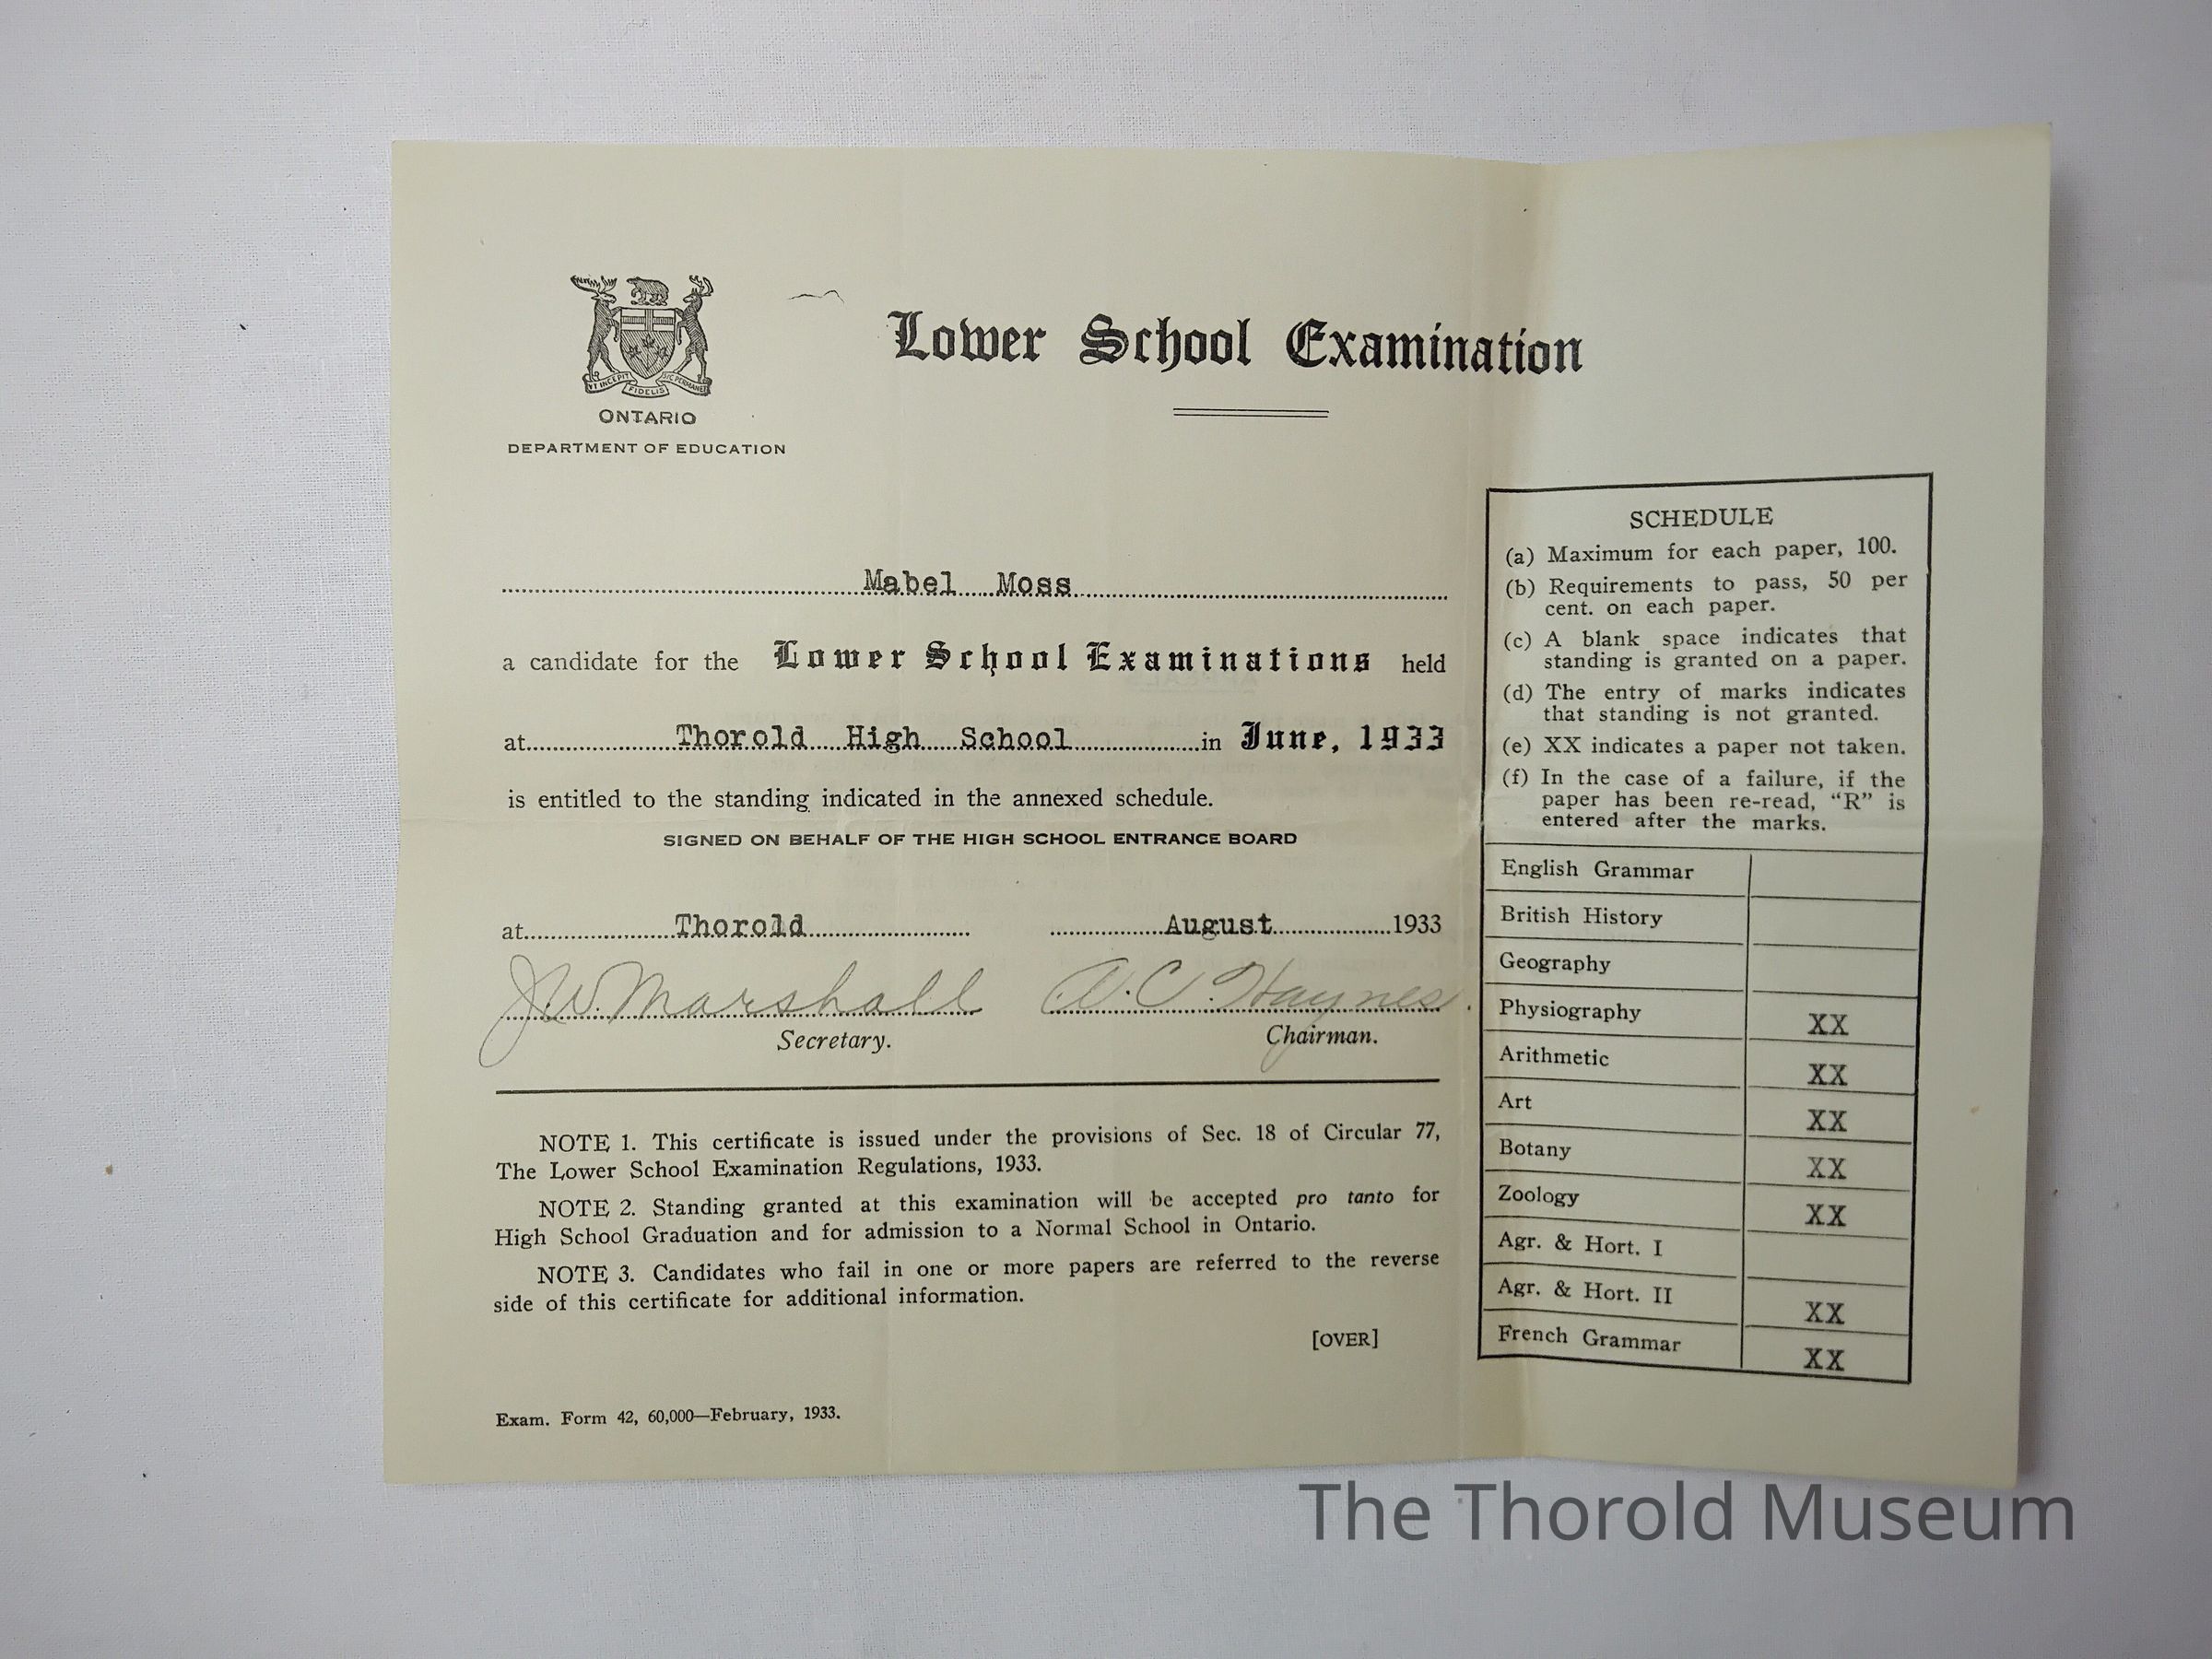 UT INCEPIT
FIDELIS
SIC PERMANET
ONTARIO
DEPARTMENT OF EDUCATION
Lower School Examination
Mabel Moss
a candidate for the Lower School Examinations held
at Thorold High School in June, 1933
is entitled to the standing indicated in the annexed schedule.
SIGNED ON BEHALF OF THE HIGH SCHOOL ENTRANCE BOARD
at Thorold August 1933
J.W. Marshall A.C. Haynes.
Secretary. Chairman.
NOTE 1. This certificate is issued under the provisions of Sec. 18 of Circular 77,
The Lower School Examination Regulations, 1933.
NOTE 2. Standing granted at this examination will be accepted pro tanto for
High School Graduation and for admission to a Normal School in Ontario.
NOTE 3. Candidates who fail in one or more papers are referred to the reverse
side of this certificate for additional information.
[OVER]
Exam. Form 42, 60,000—February, 1933.
SCHEDULE
(a) Maximum for each paper, 100.
(b) Requirements to pass, 50 per
cent. on each paper.
(c) A blank space indicates that
standing is granted on a paper.
(d) The entry of marks indicates
that standing is not granted.
(e) XX indicates a paper not taken.
(f) In the case of a failure, if the
paper has been re-read, “R” is
entered after the marks.
English Grammar
British History
Geography
Physiography XX
Arithmetic XX
Art XX
Botany XX
Zoology XX
Agr. & Hort. I
Agr. & Hort. II XX
French Grammar XX
The Thorold Museum